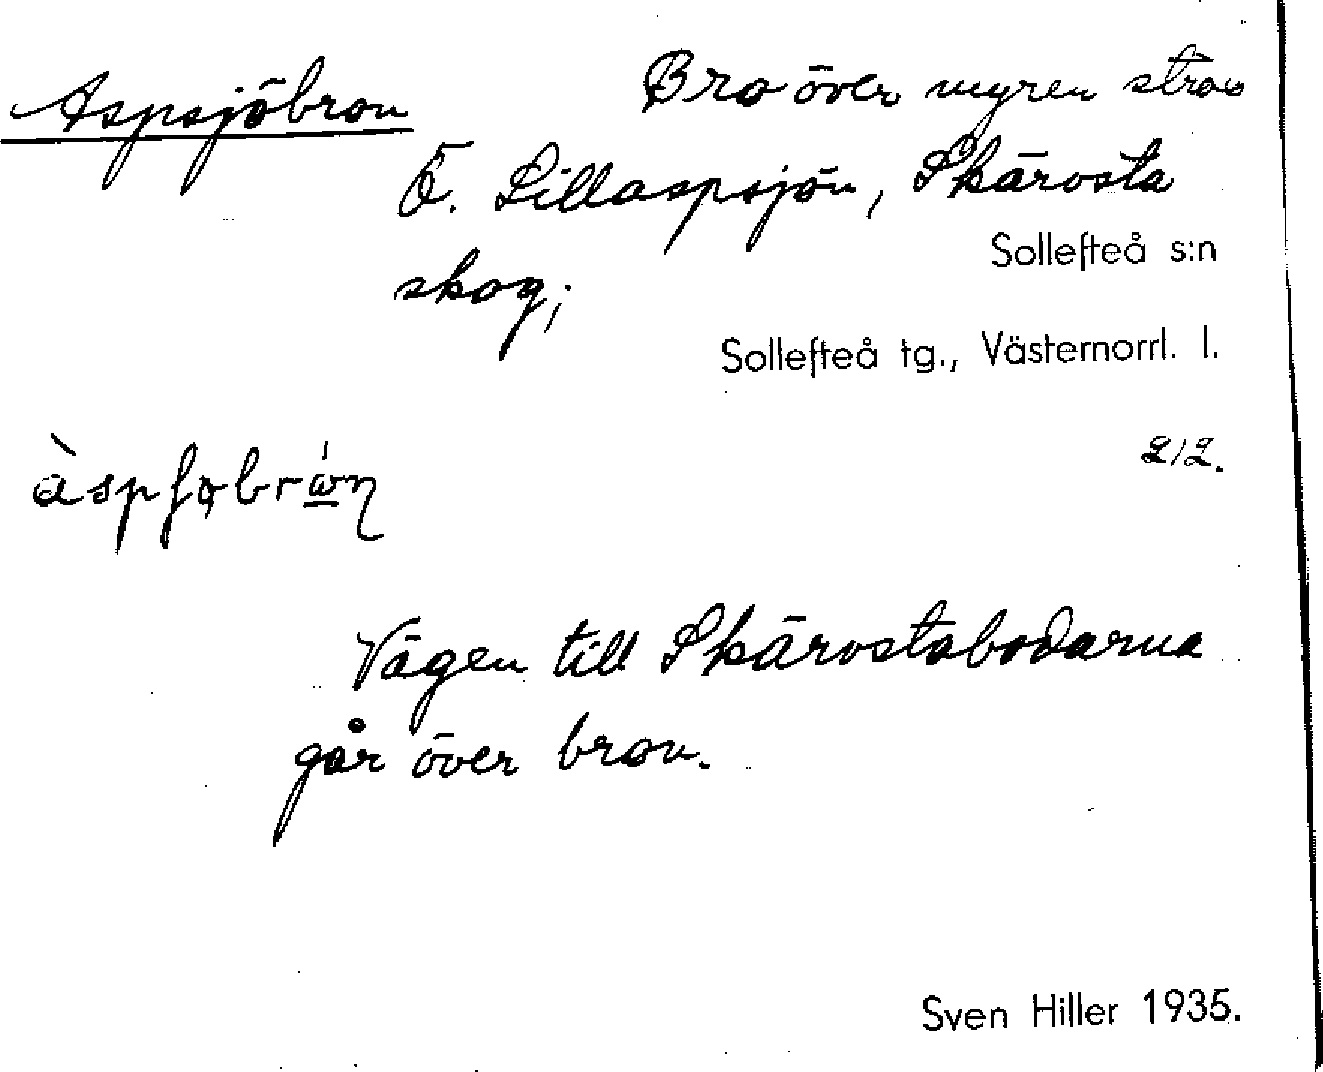 Aspsjöbron
Bro över myren strax
Ö. Lillaspsjön, Skärvsta
skog;
Sollefteå s:n
Sollefteå tg., Västernorrl. l.
212.
Vägen till Skärvstabodarna
går över bron.
Sven Hiller 1935.